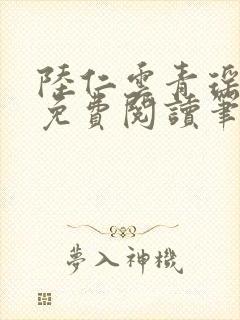 陸仁雲青瑶
免費閱讀筆
夢入神機